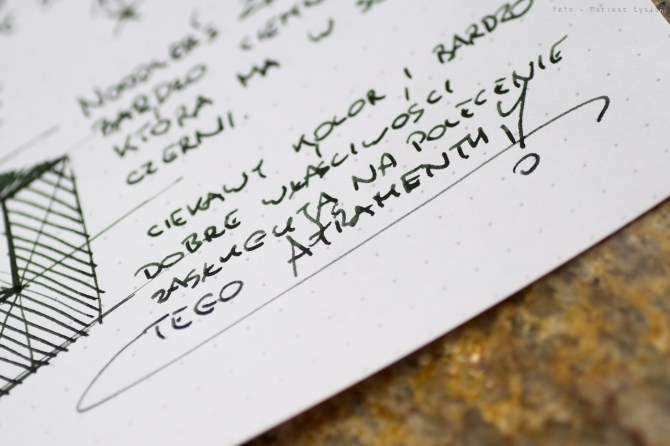 NOODLER'S
BARDZO CIEMN
KTÓRA MA W S
CZERNI.
CIEKAWY KOLOR I BARDZO
DOBRE WŁAŚCIWOŚCI
ZASŁUGUJĄ NA POLECENIE
TEGO ATRAMENTU!
Foto - Mariusz